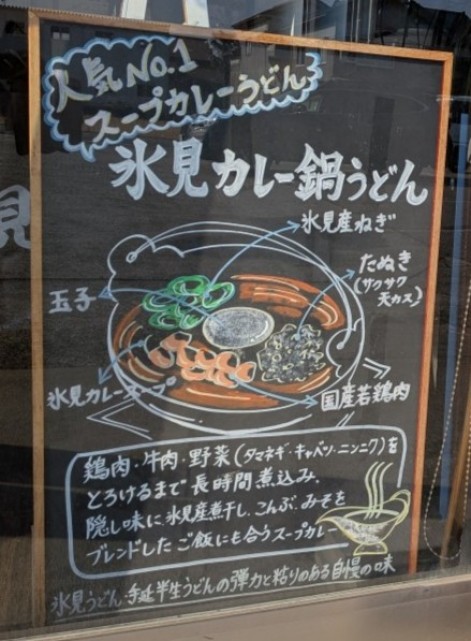 人気No.1
スープカレーうどん
氷見カレー鍋うどん
氷見産ねぎ
たぬき
(サクサク
天カス)
玉子
氷見カレースープ
国産若鶏肉
見
鶏肉・牛肉・野菜(タマネギ・キャベツ・ニンニク)を
とろけるまで長時間煮込み、
隠し味に、氷見産煮干し、こんぶ、みそを
ブレンドしたご飯にも合うスープカレー
氷見うどん・手延半生うどんの弾力と粘りのある自慢の味